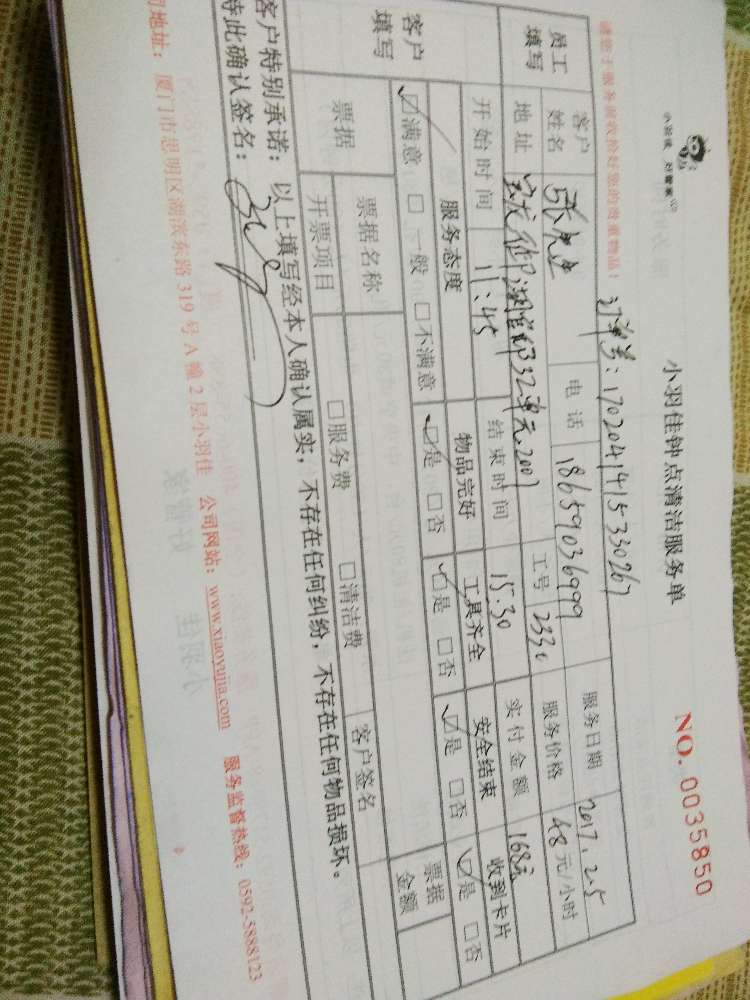 小羽佳 好管家
小羽佳钟点清洁服务单
NO. 0035850
请您于服务前收捡好您的贵重物品!
订单号:170204141533026
员工填写
客户姓名 张先生 电话 18659036999 服务日期 2017.2.5
地址 32单元2007 工号 2330 服务价格 48元/小时
开始时间 11:45 结束时间 15:30 实付金额 168元
客户填写
服务态度 物品完好 工具齐全 安全结束 收到卡片
☑满意 □一般 □不满意 ☑是 □否 ☑是 □否 ☑是 □否 ☑是 □否
票据 票据名称 □服务费 □清洁费 客户签名 票据金额
开票项目
客户特别承诺:以上填写经本人确认属实,不存在任何纠纷,不存在任何物品损坏。
特此确认签名:
司地址:厦门市思明区湖滨东路319号A幢2层小羽佳 公司网站:www.xiaoyujia.com 服务监督热线:0592-5888123